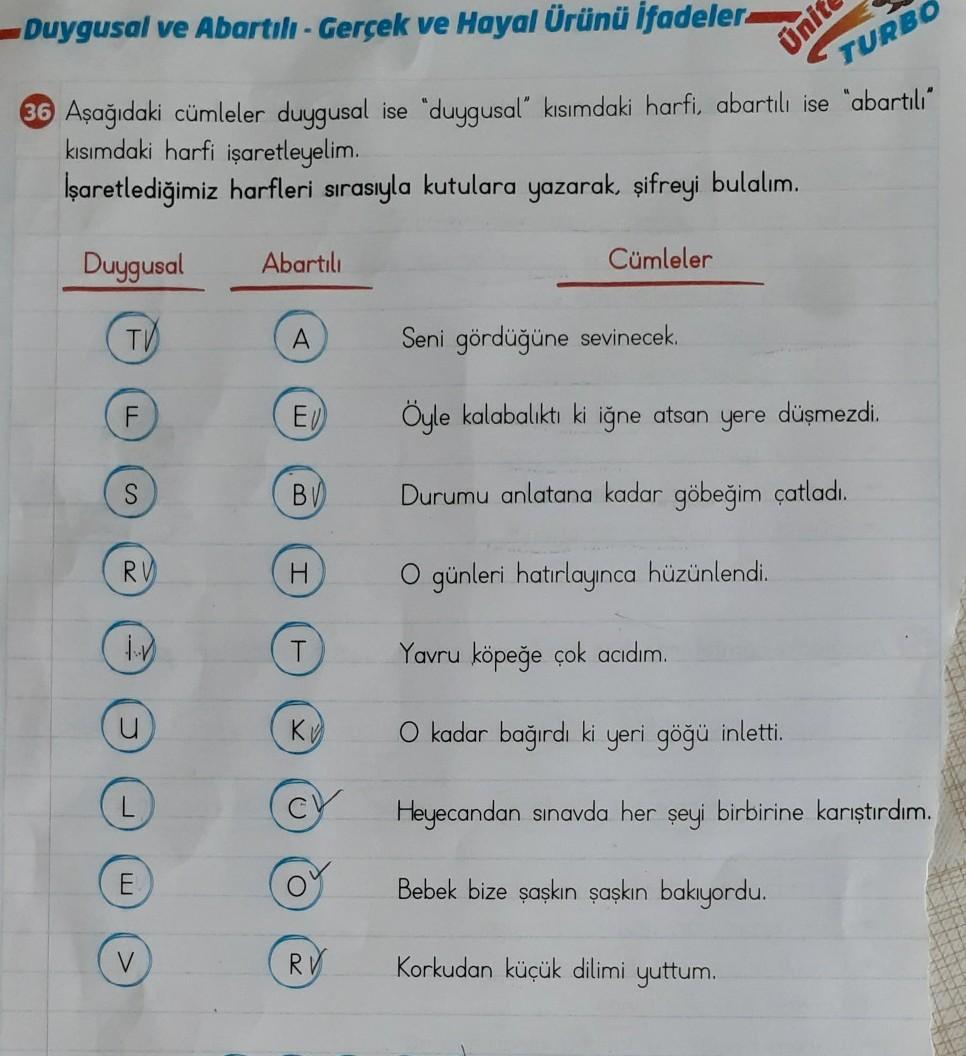 Duygusal ve Abartılı - Gerçek ve Hayal Ürünü İfadeler
Ünite
TURBO
36 Aşağıdaki cümleler duygusal ise "duygusal" kısımdaki harfi, abartılı ise "abartılı"
kısımdaki harfi işaretleyelim.
İşaretlediğimiz harfleri sırasıyla kutulara yazarak, şifreyi bulalım.
Duygusal Abartılı Cümleler
T A Seni gördüğüne sevinecek.
F E Öyle kalabalıktı ki iğne atsan yere düşmezdi.
S B Durumu anlatana kadar göbeğim çatladı.
R H O günleri hatırlayınca hüzünlendi.
İ T Yavru köpeğe çok acıdım.
U K O kadar bağırdı ki yeri göğü inletti.
L C Heyecandan sınavda her şeyi birbirine karıştırdım.
E O Bebek bize şaşkın şaşkın bakıyordu.
V R Korkudan küçük dilimi yuttum.